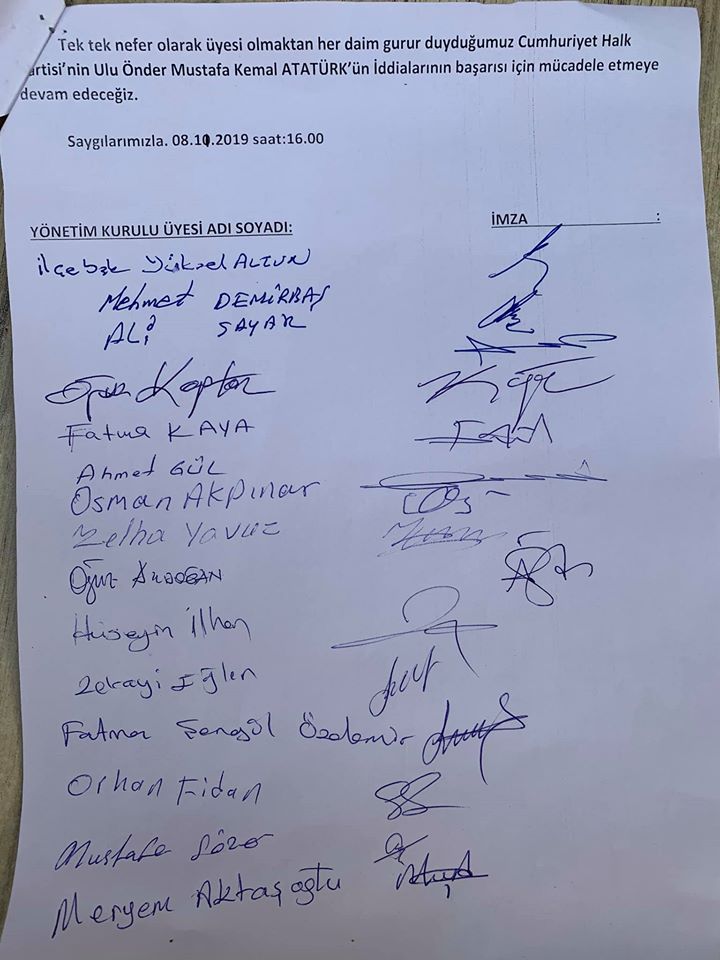 Tek tek nefer olarak üyesi olmaktan her daim gurur duyduğumuz Cumhuriyet Halk
artisi'nin Ulu Önder Mustafa Kemal ATATÜRK'ün İddialarının başarısı için mücadele etmeye
devam edeceğiz.
Saygılarımızla. 08.10.2019 saat:16.00
YÖNETİM KURULU ÜYESİ ADI SOYADI: İMZA :
ilçe bşk Yüksel ALTUN
Mehmet DEMİRBAŞ
ALİ SAYAR
Kaptan
Fatma KAYA
Ahmet GÜL
Osman AKPINAR
Zelha Yavuz
Hüseyin İlhan
Zekayi Eğlen
Fatma Şengül Özdemir
Orhan Fidan
Mustafa
Meryem Aktaşoğlu